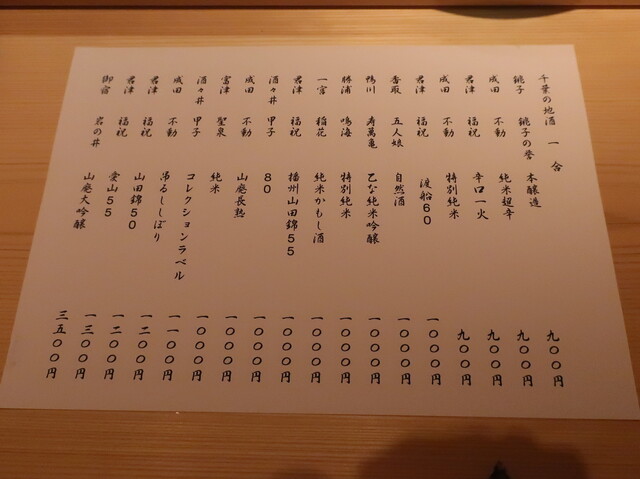 千葉の地酒 一合
銚子 銚子の誉 本醸造 九〇〇円
成田 不動 純米超辛 九〇〇円
君津 福祝 辛口一火 九〇〇円
成田 不動 特別純米 九〇〇円
君津 福祝 渡船60 一〇〇〇円
香取 五人娘 自然酒 一〇〇〇円
鴨川 寿萬亀 乙な純米吟醸 一〇〇〇円
勝浦 鳴海 特別純米 一〇〇〇円
一宮 稲花 純米かもし酒 一〇〇〇円
君津 福祝 播州山田錦55 一〇〇〇円
酒々井 甲子 80 一〇〇〇円
成田 不動 山廃長熟 一〇〇〇円
富津 聖泉 純米 一〇〇〇円
酒々井 甲子 コレクションラベル 一一〇〇円
成田 不動 吊るししぼり 一二〇〇円
君津 福祝 山田錦50 一二〇〇円
君津 福祝 愛山55 一三〇〇円
御宿 岩の井 山廃大吟醸 三五〇〇円